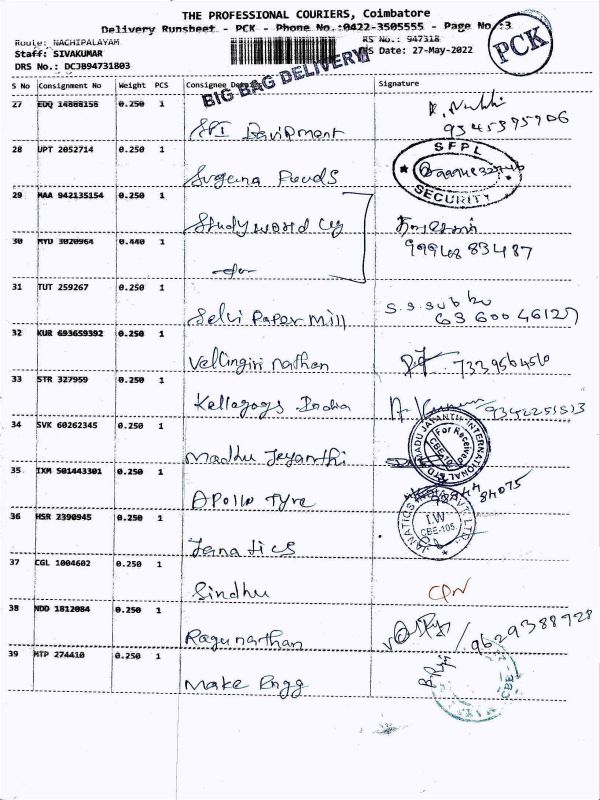 THE PROFESSIONAL COURIERS, Coimbatore
Delivery Runsheet - PCK - Phone No.:0422-3505555 - Page No.:3
Route: NACHIPALAYAM
RS No.: 947318
Staff: SIVAKUMAR
RS Date: 27-May-2022
DRS No.: DCJB94731803
PCK
BIG BAG DELIVERY
S No Consignment No Weight PCS Consignee Signature
27 EDQ 14888156 0.250 1
9345395906
28 UPT 2052714 0.250 1
Sugena Foods
SFPL
SECURITY
29 MAA 942135154 0.250 1
Study world
30 MYD 3020964 0.440 1
31 TUT 259267 0.250 1
Selvi Paper Mill
S.S. Subbu
63 600 46127
32 KUR 693659392 0.250 1
Vellingiri nathan
7339564510
33 STR 327959 0.250 1
Kellogogs India
9342251513
34 SVK 60262345 0.250 1
Madhu Jeyanthi
MADHU JAYANTI INTERNATIONAL LTD
For Received
35 IXM 501443301 0.250 1
Apollo Tyre
84075
36 HSR 2390945 0.250 1
Janatics
JANATICS INDIA PVT. LTD.
I.W
CBE-105.
37 CGL 1004602 0.250 1
Sindhu
38 NDD 1812084 0.250 1
Ragunathan
9629388928
39 MTP 274410 0.250 1
Make Engg